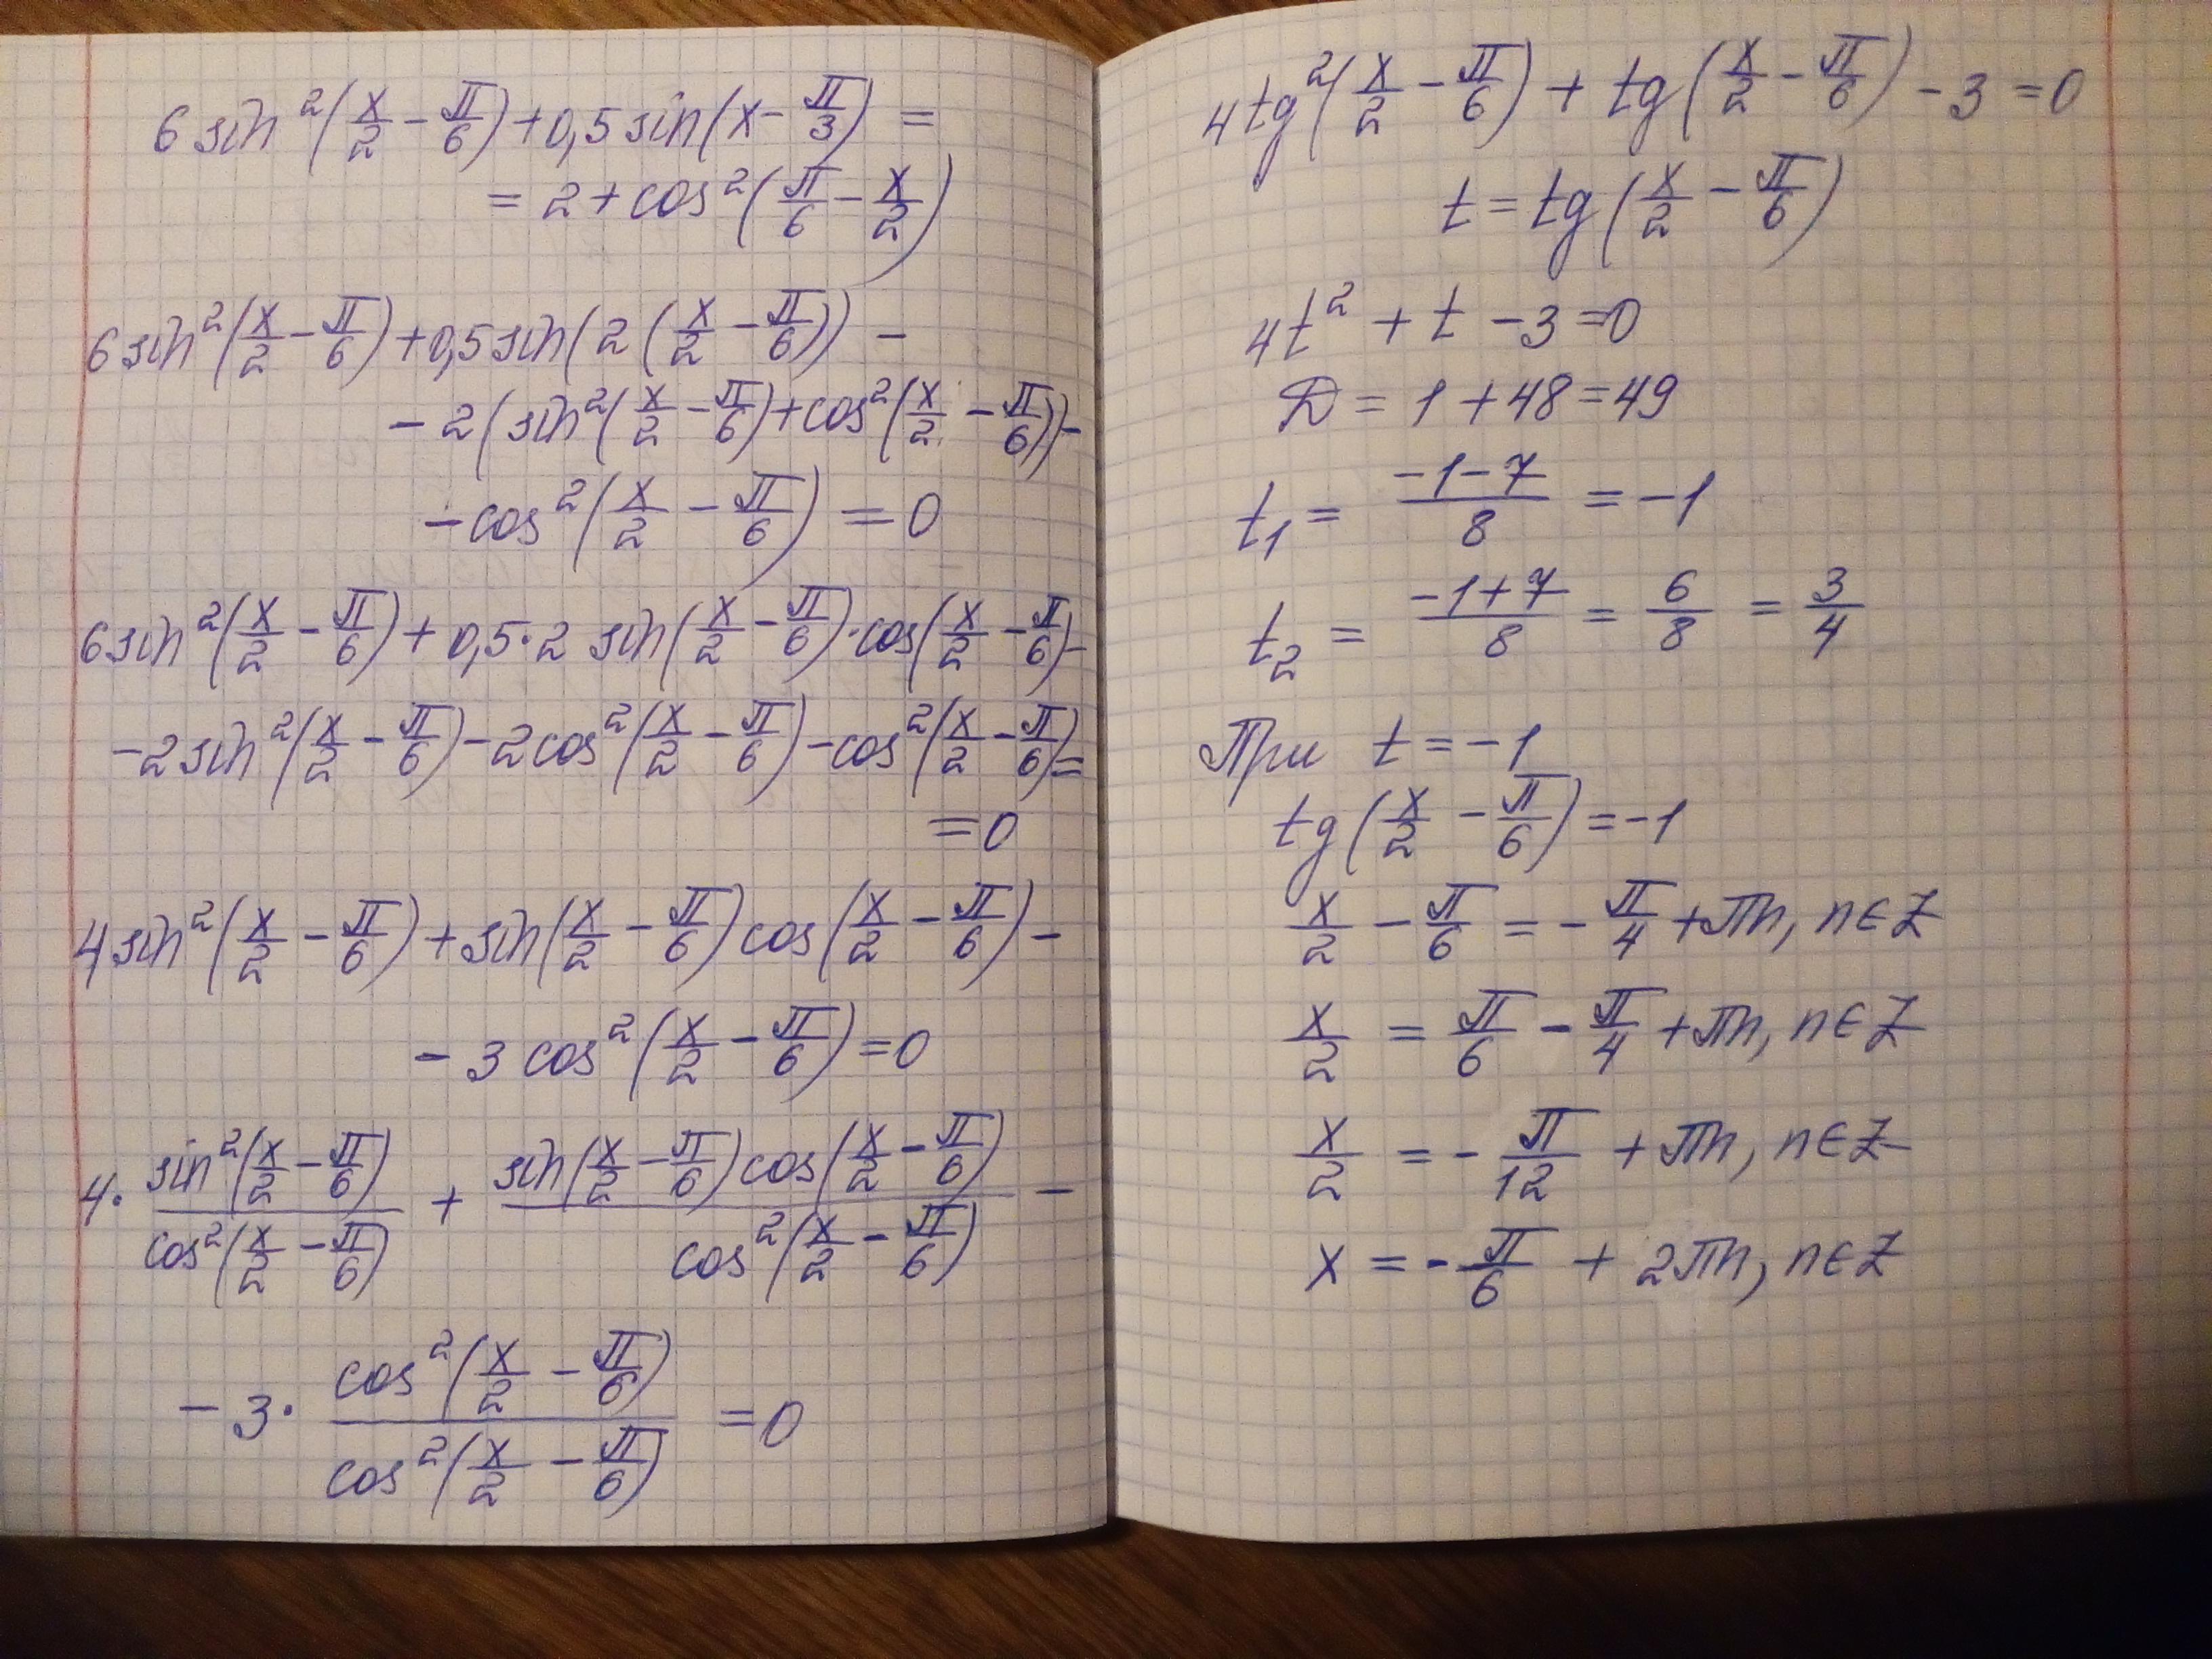 6 sin²(x/2 − π/6) + 0,5 sin(x − π/3) =
= 2 + cos²(π/6 − x/2)
6 sin²(x/2 − π/6) + 0,5 sin(2(x/2 − π/6)) −
− 2(sin²(x/2 − π/6) + cos²(x/2 − π/6)) −
− cos²(x/2 − π/6) = 0
6 sin²(x/2 − π/6) + 0,5 · 2 sin(x/2 − π/6) · cos(x/2 − π/6) −
− 2 sin²(x/2 − π/6) − 2 cos²(x/2 − π/6) − cos²(x/2 − π/6) =
= 0
4 sin²(x/2 − π/6) + sin(x/2 − π/6) cos(x/2 − π/6) −
− 3 cos²(x/2 − π/6) = 0
4 · sin²(x/2 − π/6) / cos²(x/2 − π/6) + sin(x/2 − π/6) cos(x/2 − π/6) / cos²(x/2 − π/6) −
− 3 · cos²(x/2 − π/6) / cos²(x/2 − π/6) = 0
4 tg²(x/2 − π/6) + tg(x/2 − π/6) − 3 = 0
t = tg(x/2 − π/6)
4t² + t − 3 = 0
Д = 1 + 48 = 49
t₁ = (−1 − 7)/8 = −1
t₂ = (−1 + 7)/8 = 6/8 = 3/4
При t = −1
tg(x/2 − π/6) = −1
x/2 − π/6 = −π/4 + πn, n∈Z
x/2 = π/6 − π/4 + πn, n∈Z
x/2 = −π/12 + πn, n∈Z
x = −π/6 + 2πn, n∈Z